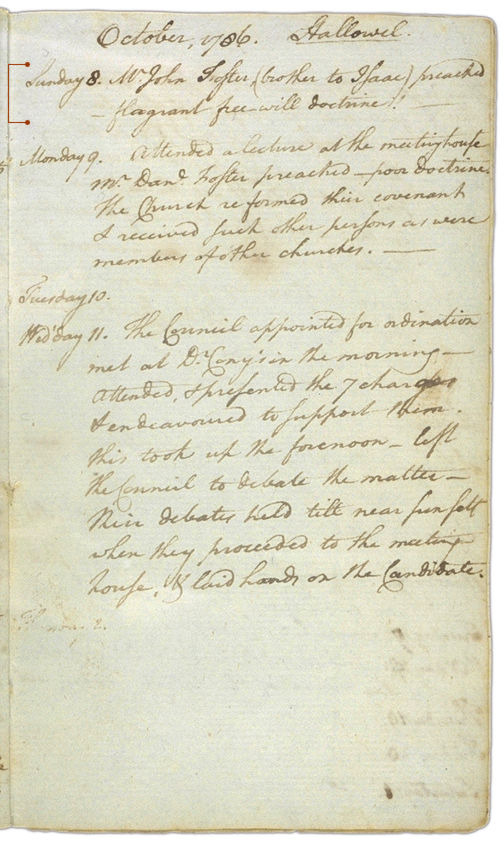 October, 1786. Hallowel.
Sunday 8. Mr John Foster, (brother to Isaac) preached
— flagrant free-will doctrine!! —
Monday 9. Attended a lecture at the meetinghouse
Mr. Danl. Foster preached — poor doctrine.
The Church reformed their covenant
& received such other persons as were
members of other churches. —
Tuesday 10.
Wed'day 11. The Council appointed for ordination
met at Dr. Cony's in the morning —
Attended, & presented the 7 charges
& endeavoured to support them.
this took up the forenoon — left
the Council to debate the matter —
Their debates held till near sun sett
when they proceeded to the meeting
house, & laid hands on the Candidate.